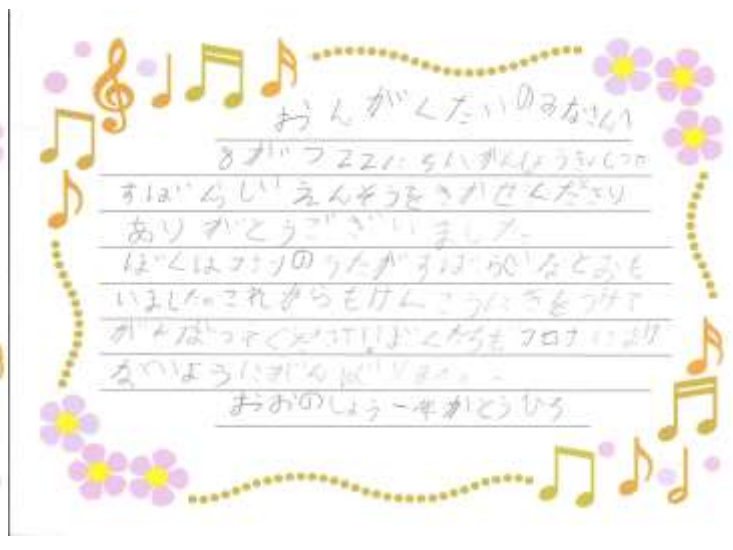 おんがくたいのみなさんへ
8がつ22にち
すばらしい えんそうをきかせくださり
ありがとうございました
ぼくは のうたがすばらしいなとおも
いました。これからもけんこうにきをつけて
がんばってください。ぼくたちもコロナにまけ
ないようにがんばります。
おおのしょう一年かとうひろ